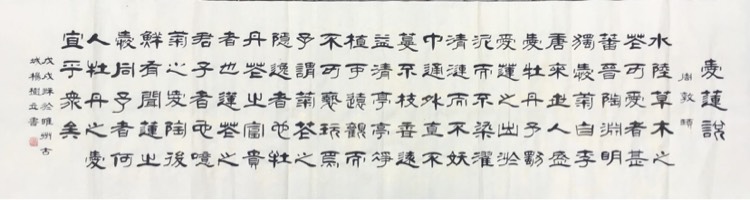 愛蓮說
周敦頤
水陸草木之
花可愛者甚
蕃晉陶淵明
獨愛菊自李
唐來世人盛
愛牡丹予獨
愛蓮之出淤
泥而不染濯
清漣而不妖
中通外直不
蔓不枝香遠
益清亭亭淨
植可遠觀而
不可褻玩焉
予謂菊花之
隱逸者也牡
丹花之富貴
者也蓮花之
君子者也噫
菊之愛陶後
鮮有聞蓮之
愛同予者何
人牡丹之愛
宜乎眾矣
戊戌秋於睢州古
城楊樹立書